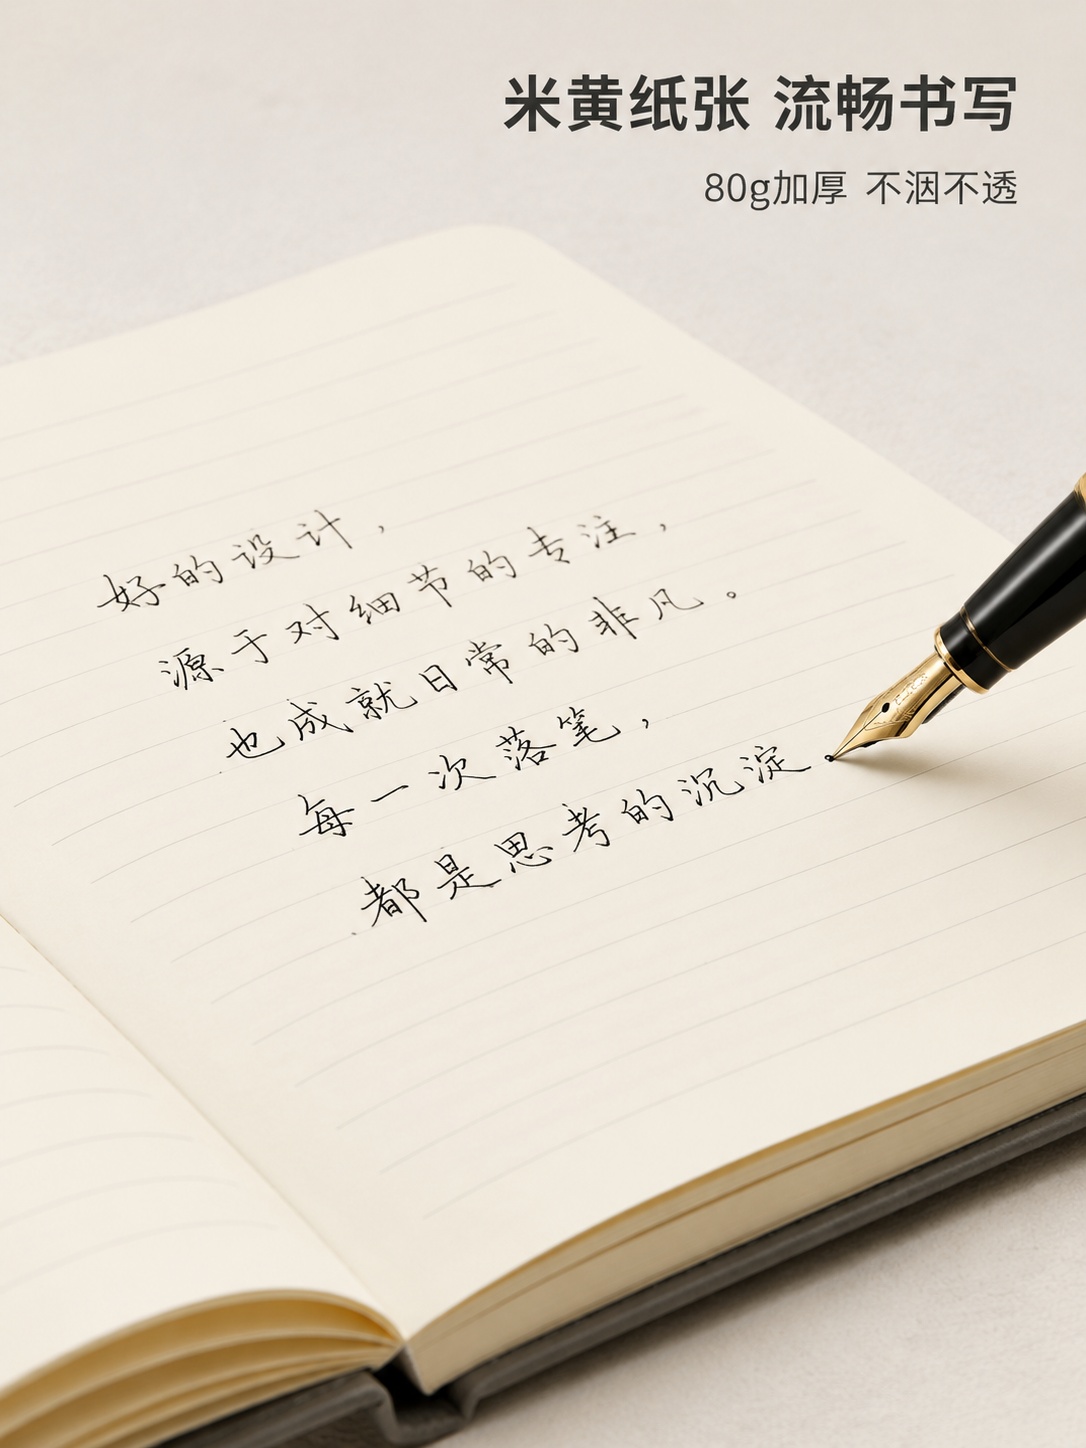 米黄纸张 流畅书写
80g加厚 不洇不透
好的设计，
源于对细节的专注，
也成就日常的非凡。
每一次落笔，
都是思考的沉淀